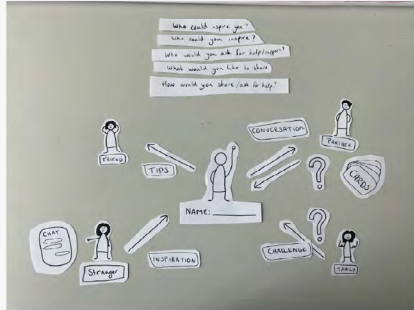 Who could inspire you?
Who could you inspire?
Who would you ask for help/support?
What would you like to share
How would you share/ask for help?
CONVERSATION
FRIEND
PARTNER
TIPS
CARDS
NAME:
CHAT
Stranger
INSPIRATION
CHALLENGE
FAMILY